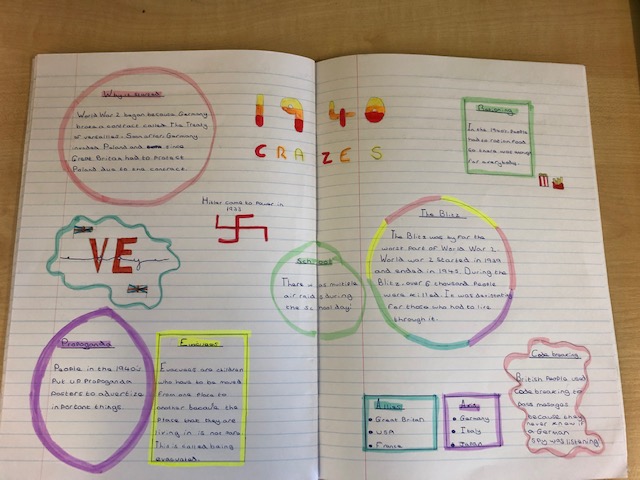 Why it started
World War 2 began because Germany
broke a contract called the Treaty
of Versailles. Soon after Germany
invaded Poland and since
Great Britan had to Protect
Poland due to the contract.
1940
CRAZES
Rationing
In the 1940s People
had to ration food
so there was enough
for everybody.
Hitler came to Power in
1933
VE
The Blitz
The Blitz was by far the
worst part of World War 2.
World war 2 started in 1939
and ended in 1945. During the
Blitz, over 6 thousand People
were killed. It was devastating
for those who had to live
through it.
Schools
There was multiple
air raids during
the school day!
Propaganda
People in the 1940s
Put up Propaganda
posters to advertize
important things.
Evacuees
Evacuees are children
who have to be moved
from one Place to
another because the
Place that they are
living in is not safe.
This is called being
evacuated.
Allies
Great Britan
USA
France
Axis
Germany
Italy
Japan
Code breaking
British People used
code breaking to
pass messages
because they
never knew if
a German
spy was listening